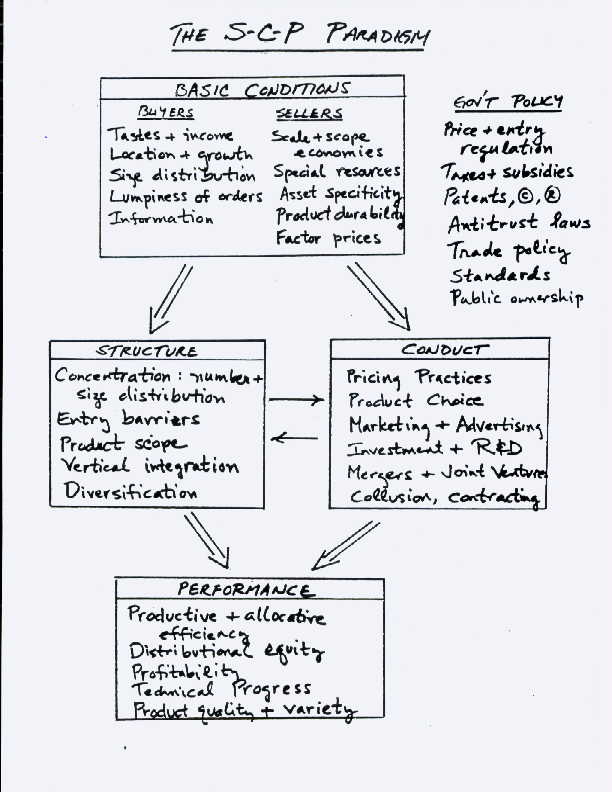 THE S-C-P PARADIGM
BASIC CONDITIONS
BUYERS
Tastes + income
Location + growth
Size distribution
Lumpiness of orders
Information
SELLERS
Scale + scope
economies
Special resources
Asset specificity
Product durability
Factor prices
GOV'T POLICY
Price + entry
regulation
Taxes + subsidies
Patents, ©, ®
Antitrust laws
Trade policy
Standards
Public ownership
STRUCTURE
Concentration: number +
size distribution
Entry barriers
Product scope
Vertical integration
Diversification
CONDUCT
Pricing Practices
Product Choice
Marketing + Advertising
Investment + R&D
Mergers + Joint Ventures
Collusion, contracting
PERFORMANCE
Productive + allocative
efficiency
Distributional equity
Profitability
Technical Progress
Product quality + variety